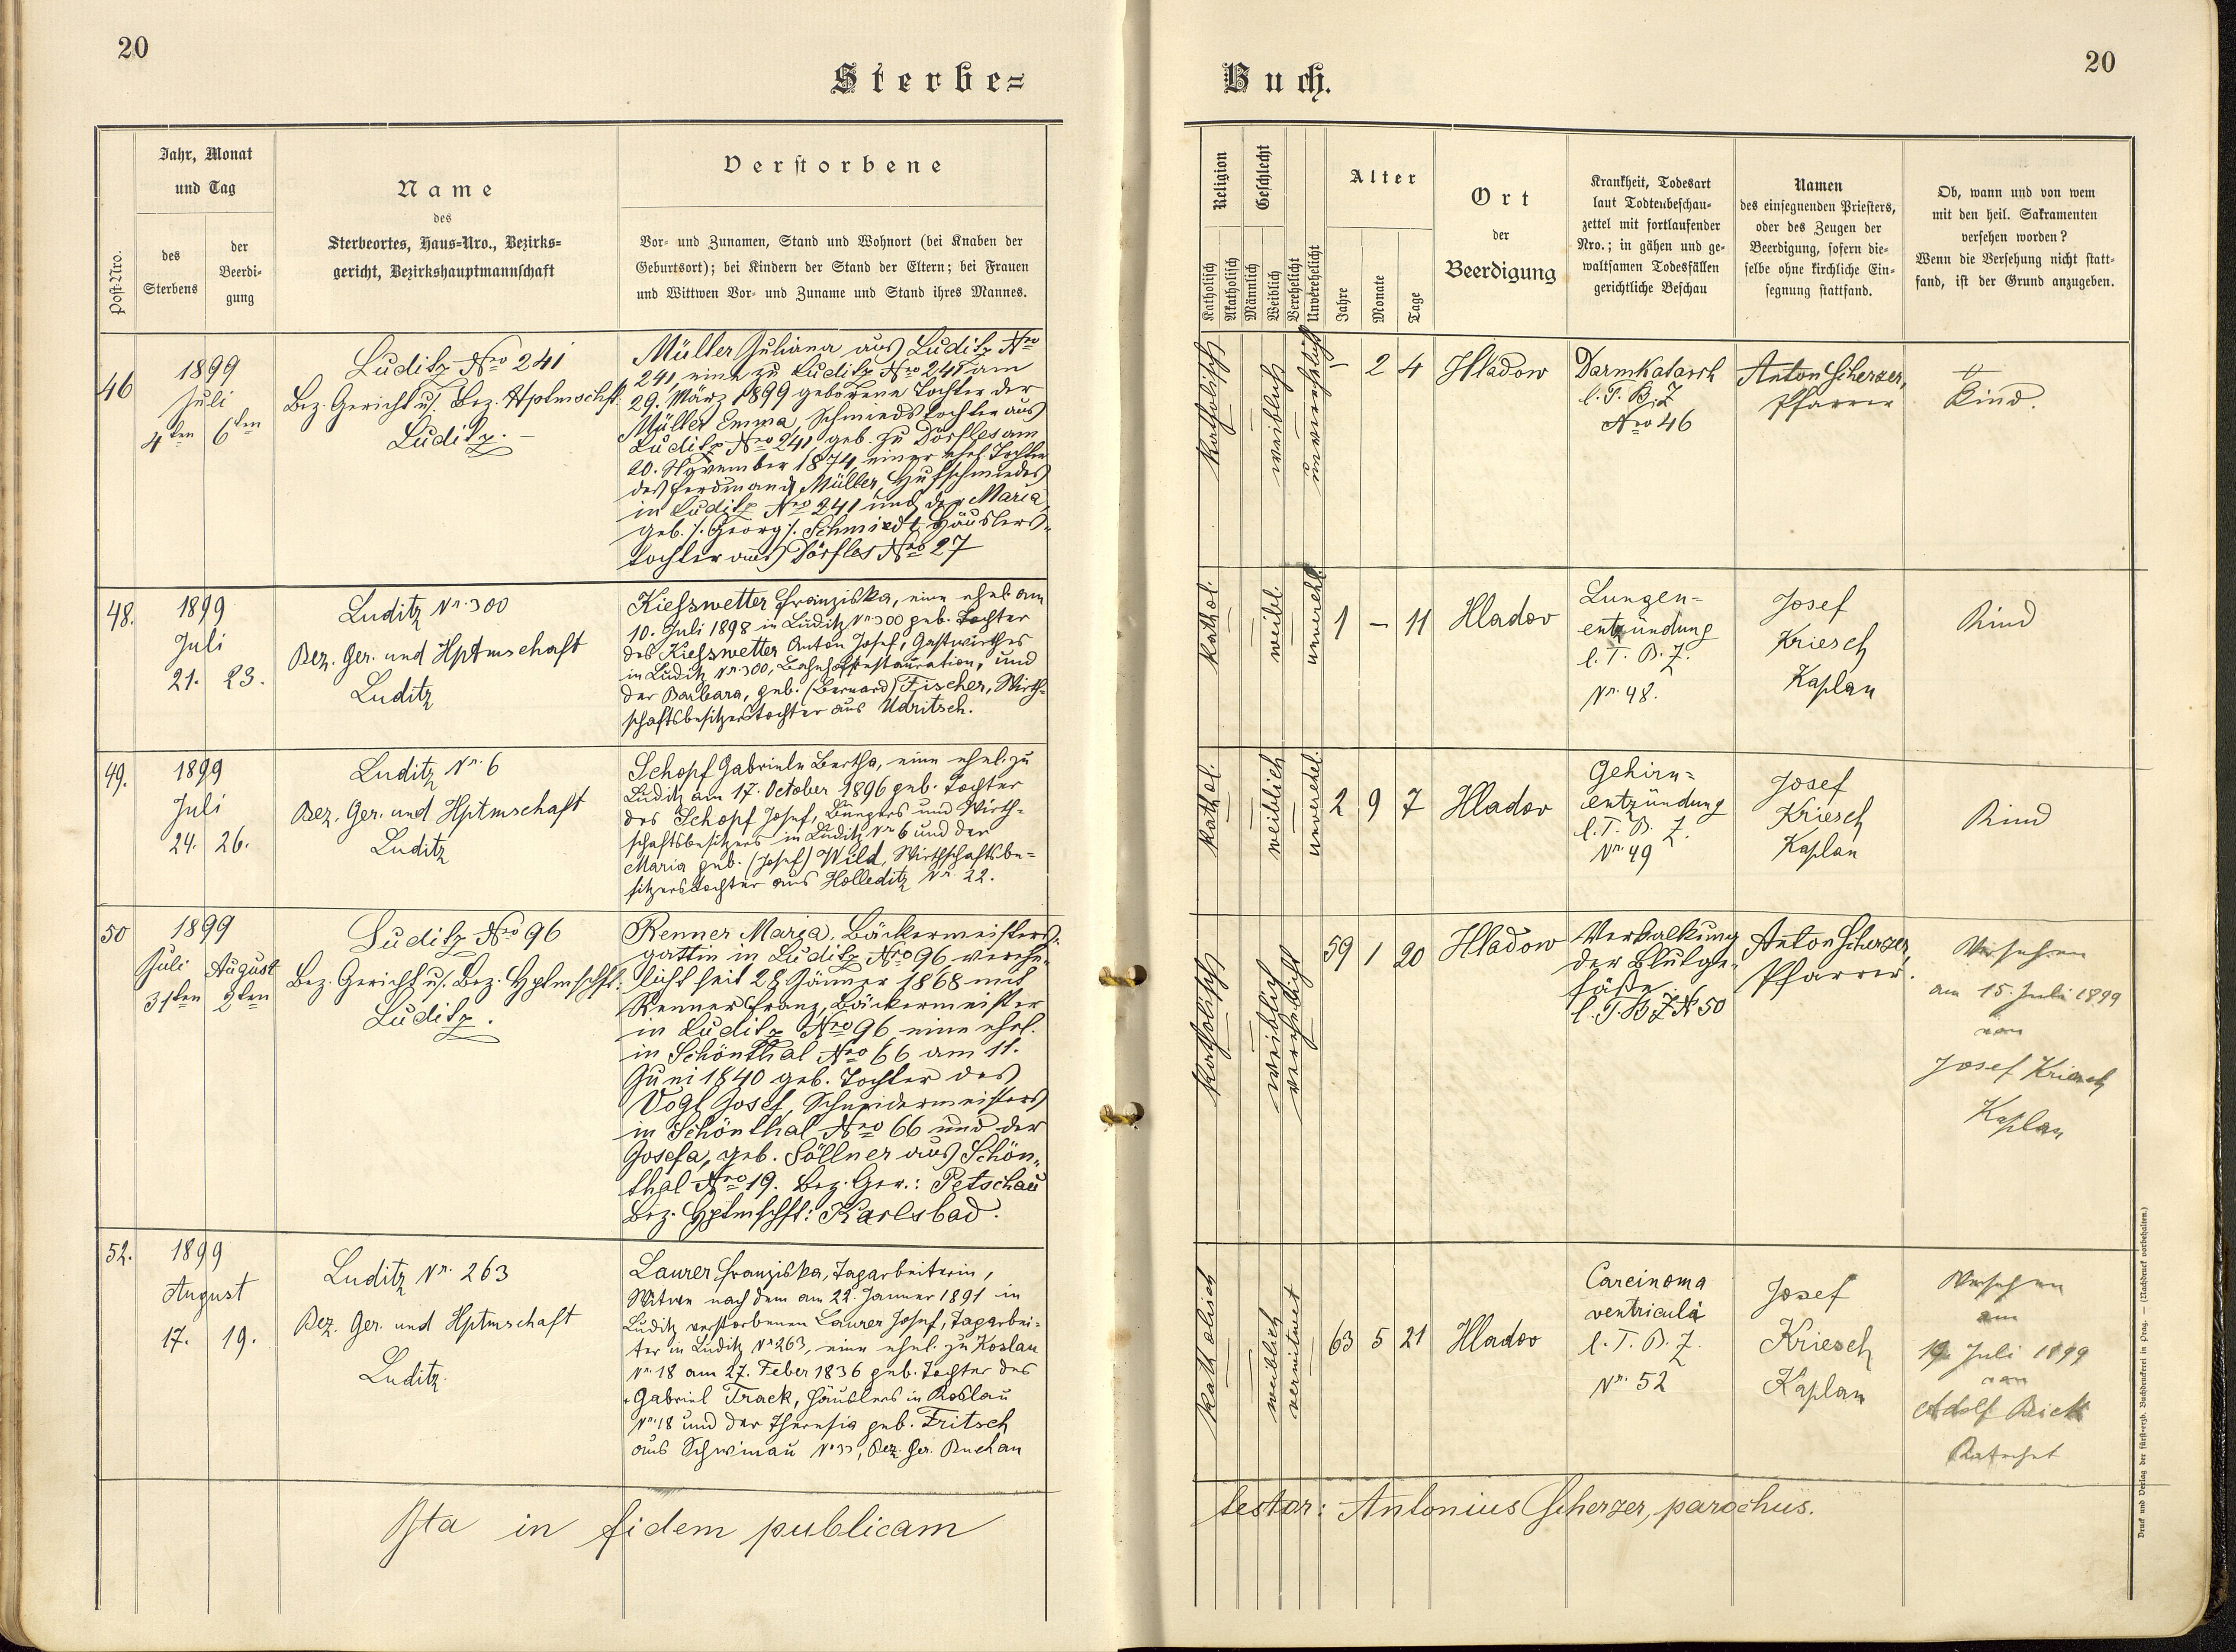 20
Sterbe=
Jahr, Monat
und Tag
Post-Nro.
des
Sterbens
der
Beerdi-
gung
Name
des
Sterbeortes, Haus=Nro., Bezirks=
gericht, Bezirkshauptmannschaft
Verstorbene
Vor- und Zunamen, Stand und Wohnort (bei Knaben der
Geburtsort); bei Kindern der Stand der Eltern; bei Frauen
und Wittwen Vor- und Zuname und Stand ihres Mannes.
46
1899
Juli
4ten 6ten
Luditz Nro 241
Bez. Gericht u. Bez. Hptmschft.
Luditz.
Müller Juliana aus Luditz Nro
241, eine zu Luditz Nro 241 am
29. März 1899 geborene Tochter der
Müller Emma, Schmiedstochter aus
Luditz Nro 241, geb. zu Dörfles am
20. November 1874, einer ehel. Tochter
des Ferdinand Müller, Hufschmiedes
in Luditz Nro 241 und der Maria,
geb. /: Georg :/ Schmiedt, Häuslers-
tochter aus Dörfles Nro 27
48.
1899
Juli
21. 23.
Luditz Nr. 300
Bez. Ger. und Hptmschaft
Luditz
Kiesswetter Franziska, eine ehel. am
10. Juli 1898 in Luditz Nr. 300 geb. Tochter
des Kiesswetter Anton Josef, Gastwirthes
in Luditz Nr. 300, Bahnhofrestauration, und
der Barbara, geb. (Bernard) Fischer, Wirth-
schaftsbesitzerstochter aus Udritsch.
49.
1899
Juli
24. 26.
Luditz Nr. 6
Bez. Ger. und Hptmschaft
Luditz
Schopf Gabriele Bertha, eine ehel. zu
Luditz am 17. October 1896 geb. Tochter
des Schopf Josef, Bürgers und Wirth-
schaftsbesitzers in Luditz Nr. 6 und der
Maria geb. (Josef) Wild, Wirthschaftsbe-
sitzerstochter aus Holleditz Nr. 22.
50
1899
Juli August
31ten 2ten
Luditz Nro 96
Bez. Gericht u. Bez. Hptmschft:
Luditz.
Renner Maria, Bäckermeisters-
gattin in Luditz Nro 96 verehe-
licht seit 28 Jänner 1868 mit
Renner Franz, Bäckermeister
in Luditz Nro 96 eine ehel.
in Schönthal Nro 66 am 11.
Juni 1840 geb. Tochter des
Vogl Josef, Schneidermeisters
in Schönthal Nro 66 und der
Josefa, geb. Söllner aus Schön-
thal Nro 19. Bez. Ger.: Petschau
Bez. Hptmschft: Karlsbad.
52.
1899
August
17. 19.
Luditz Nr. 263
Bez. Ger. und Hptmschaft
Luditz
Laurer Franziska, Tagarbeiterin,
Witwe nach dem am 22. Jänner 1891 in
Luditz verstorbenen Laurer Josef, Tagarbei-
ter in Luditz Nr 263, eine ehel. zu Koslau
Nr. 18 am 27. Feber 1836 geb. Tochter des
Gabriel Track, Häuslers in Koslau
Nr. 18 und der Theresia geb. Fritsch
aus Schwinau Nr 33, Bez. Ger. Buchau
Ista in fidem publicam
20
Buch.
Religion
Geschlecht
Katholisch
Akatholisch
Männlich
Weiblich
Verehelicht
Unverehelicht
Alter
Jahre
Monate
Tage
Ort
der
Beerdigung
Krankheit, Todesart
laut Todtenbeschau-
zettel mit fortlaufender
Nro.; in gähen und ge-
waltsamen Todesfällen
gerichtliche Beschau
Namen
des einsegnenden Priesters,
oder des Zeugen der
Beerdigung, sofern die-
selbe ohne kirchliche Ein-
segnung stattfand.
Ob, wann und von wem
mit den heil. Sakramenten
versehen worden?
Wenn die Versehung nicht statt-
fand, ist der Grund anzugeben.
katholisch
weiblich
unverehelicht
– 2 4
Hladow
Darmkatarrh
l. T. B. Z
Nro 46
Anton Scherzer,
Pfarrer
Kind.
kathol.
weibl.
unverehl.
1 – 11
Hladov
Lungen=
entzündung
l. T. B. Z.
Nr. 48.
Josef
Kriesch
Kaplan
Kind
kathol.
weiblich
unverehel.
2 9 7
Hladov
Gehirn=
entzündung
l. T. B. Z.
Nr. 49
Josef
Kriesch
Kaplan
Kind
katholisch
weiblich
verehelicht
59 1 20
Hladow
Verkalkung
der Blutge-
fäße
l. T. B Z N 50
Anton Scherzer,
Pfarrer.
Versehen
am 15. Juli 1899
von
Josef Kriesch
Kaplan
katholisch
weiblich
verwitwet
63 5 21
Hladov
Carcinoma
ventriculi
l. T. B. Z.
Nr. 52
Josef
Kriesch
Kaplan
Versehen
am
Juli 1899
von
Adolf
Katechet
testor: Antonius Scherzer, parochus.
Druck und Verlag der fürst-erzb. Buchdruckerei in Prag. — (Nachdruck vorbehalten.)